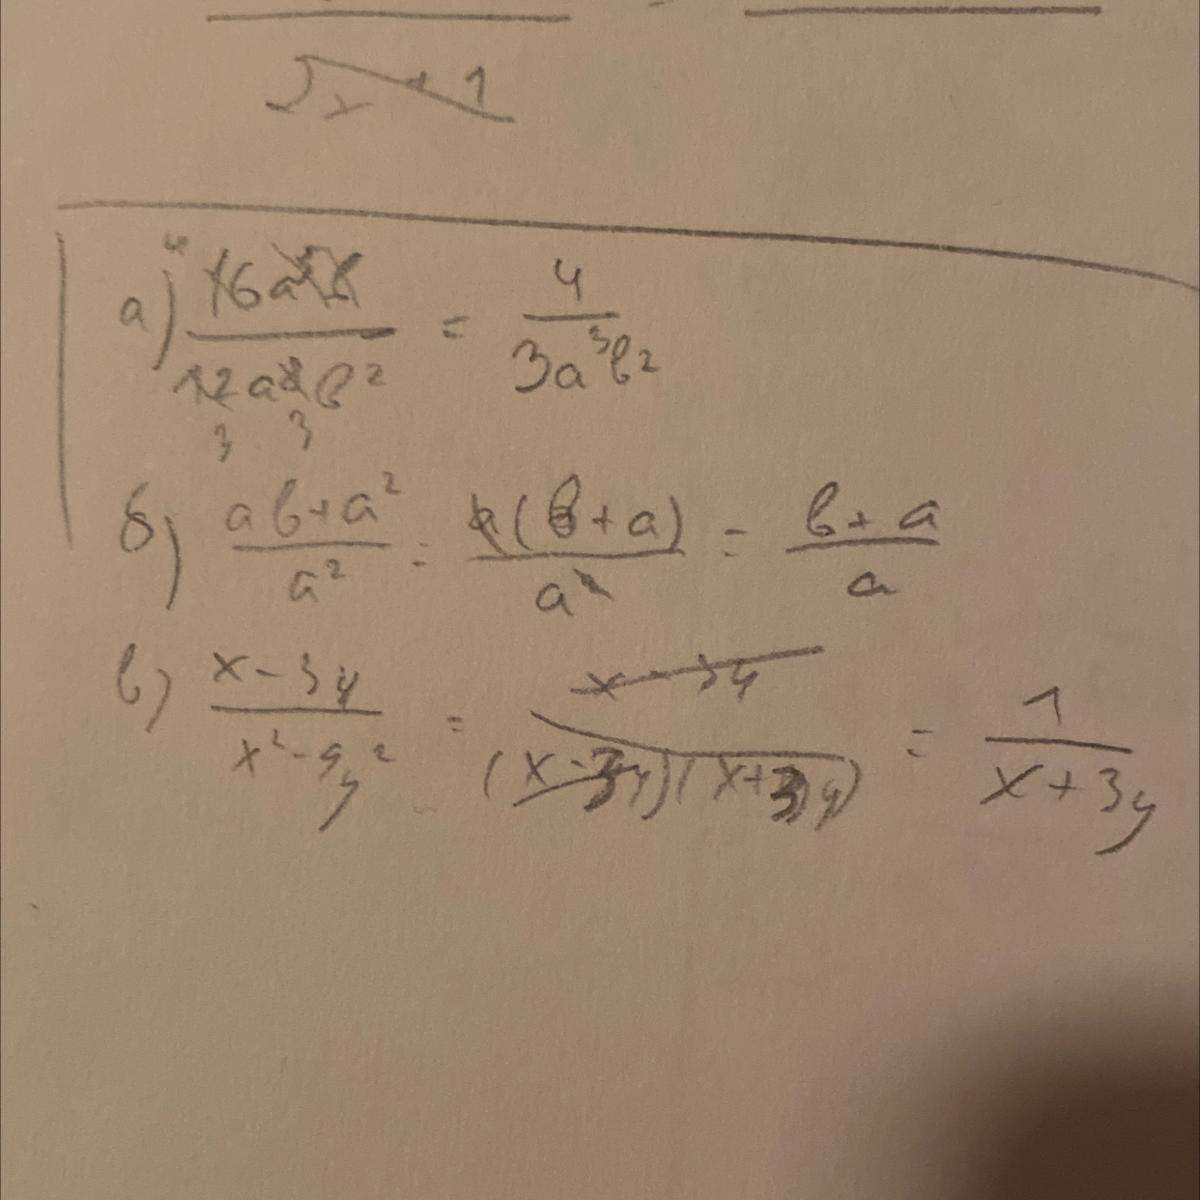 2x + 1
а) = 4/(3a³b²)
б) (ab+a²)/a² = a(b+a)/a² = (b+a)/a
в) (x-3y)/(x²-9y²) = (x-3y)/((x-3y)(x+3y)) = 1/(x+3y)